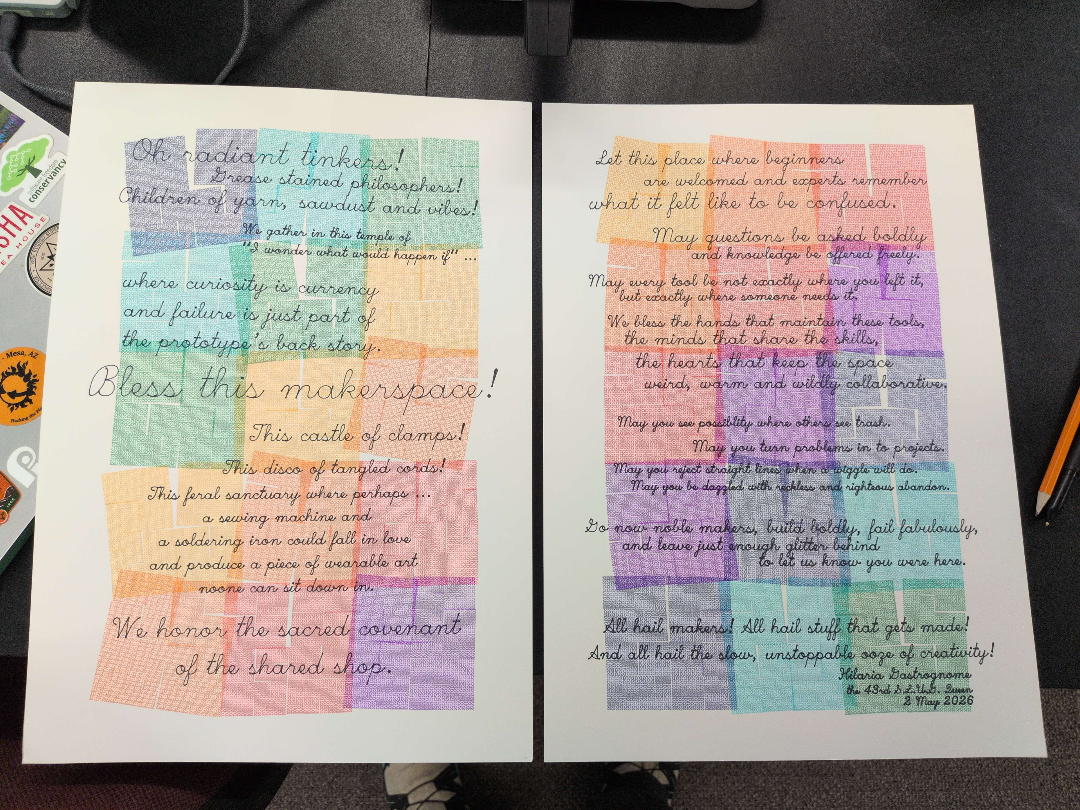 Oh radiant tinkers!
Grease stained philosophers!
Children of yarn, sawdust and vibes!
We gather in this temple of
"I wonder what would happen if" ...
where curiosity is currency
and failure is just part of
the prototype's back story.
Bless this makerspace!
This castle of clamps!
This disco of tangled cords!
This feral sanctuary where perhaps ...
a sewing machine and
a soldering iron could fall in love
and produce a piece of wearable art
noone can sit down in.
We honor the sacred covenant
of the shared shop.
Let this place where beginners
are welcomed and experts remember
what it felt like to be confused.
May questions be asked boldly
and knowledge be offered freely.
May every tool be not exactly where you left it,
but exactly where someone needs it.
We bless the hands that maintain these tools,
the minds that share the skills,
the hearts that keep the space
weird, warm and wildly collaborative.
May you see possiblity where others see trash.
May you turn problems in to projects.
May you reject straight lines when a wiggle will do.
May you be dazzled with reckless and righteous abandon.
Go now noble makers, build boldly, fail fabulously,
and leave just enough glitter behind
to let us know you were here.
All hail makers! All hail stuff that gets made!
And all hail the slow, unstoppable ooze of creativity!
Hilaria Gastrognome
the 43rd S.L.U.G. Queen
2 May 2026
conservancy
SHA
EA HOUSE
Mesa, AZ